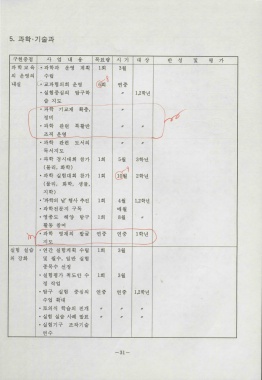 5. 과학·기술과
구현중점 사 업 내 용 목표량 시 기 대 상 반 성 및 평 가
과학교육 ◦과학과 운영 계획 1회 3월
의 운영의 수립
내실 ◦교과협의회 운영 연중
◦실험중심의 탐구학 〃 1,2학년
습 지도
◦과학 기교재 확충, 〃 〃
정비
◦과학 관련 특활반 〃 〃
조직 운영
◦과학 관련 도서의 〃 〃
독서지도
◦과학 경시대회 참가 1회 5월 3학년
(물리, 화학)
◦과학 실험대회 참가 1회 10월 2학년
(물리, 화학, 생물,
지학)
◦'과학의 날' 행사 추진 1회 4월 1,2학년
◦과학전문지 구독 매월
1회 8월 〃
활동 참여
◦과학 영재의 발굴 연중 연중 1학년
지도
실험 실습 ◦연간 실험계획 수립 1회 3월
의 강화 및 필수, 일반 실험
종목수 선정
◦실험평가 척도안 수 1회 3월
정 작업
◦탐구 실험 중심의 연중 연중 1,2학년
수업 확대
◦조리적 학습의 전개 〃 〃 〃
◦실험 실습 사례 발표 〃 〃 〃
◦실험기구 조작기술 〃 〃
연수
- 31 -